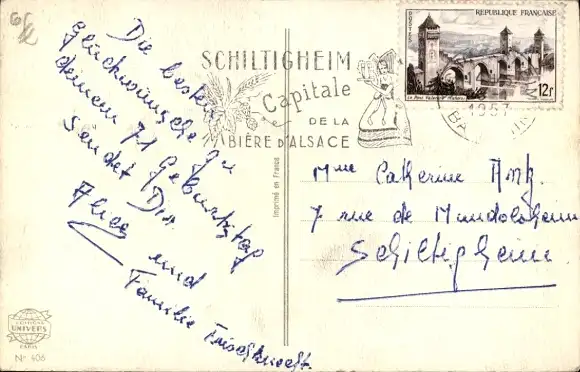 Die besten
Glückwünsche zu
deinem 71 Geburtstag
sendet Dir
Alice und
Familie
SCHILTIGHEIM
Capitale
DE LA
BIÈRE D'ALSACE
REPUBLIQUE FRANÇAISE
12f
1957
Imprimé en France
Mme Catherine
7 rue de Mundolsheim
Schiltigheim
UNIVERS
PARIS
N° 406